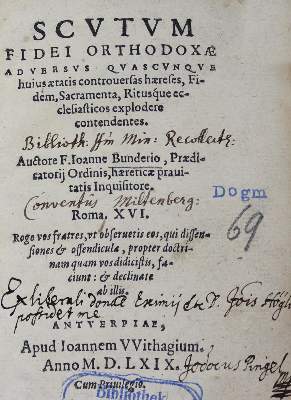 SCVTVM
FIDEI ORTHODOXÆ
ADVERSVS QVASCVNQVE
huius ætatis controversas hæreses, Fi-
dem, Sacramenta, Ritusque ec-
clesiasticos explodere
contendentes.
Biblioth. Min: Recollect:
Auctore F. Ioanne Bunderio, Prædi-
catorij Ordinis, hæreticæ pravi-
tatis Inquisitore.
Dogm
Conventus Miltenberg:
69
Roma. XVI.
Rogo vos fratres, vt observetis eos, qui dissen-
siones & offendicula, propter doctri-
nam quam vos didicistis, fa-
ciunt: & declinate
ab illis.
Ex liberali done Eximij D. Jois
possidet me
ANTVERPIAE,
Apud Ioannem VVithagium.
Anno M. D. LXIX.
Jodocus
Cum Privilegio.
Bibliothek